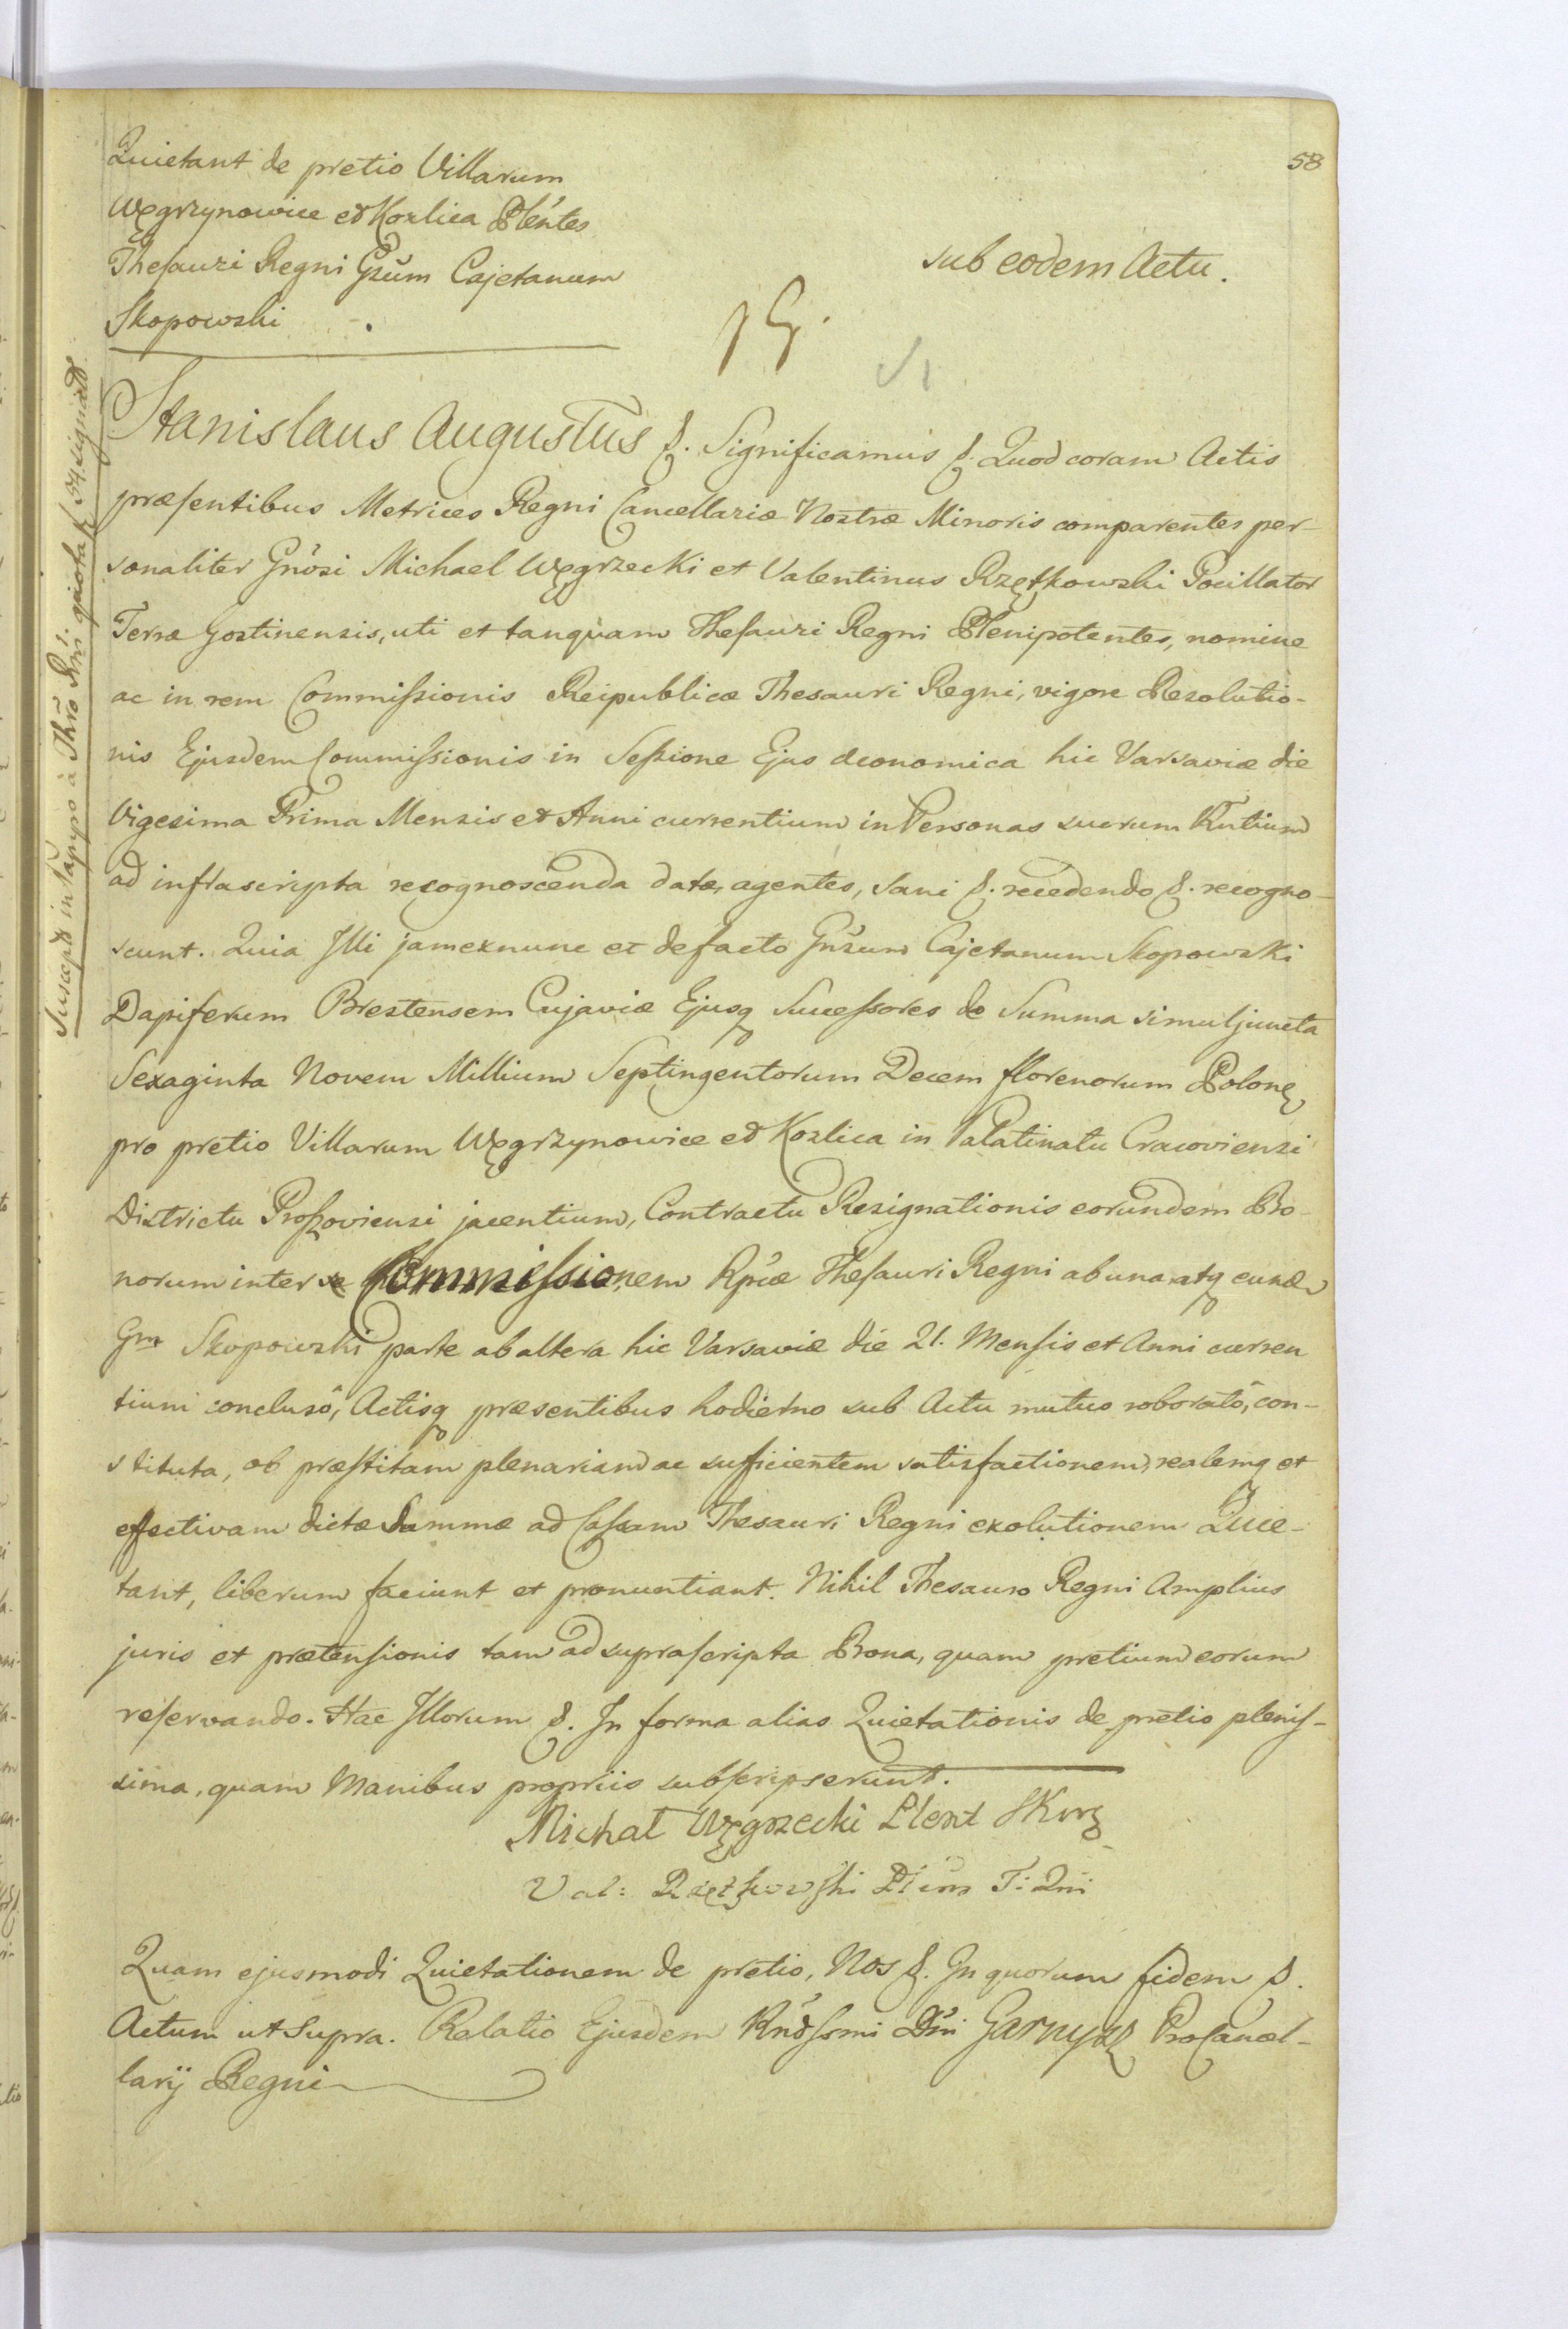 58
Quietant de pretio Villarum
Węgrzynowice et Kozlica Plentes
Thesauri Regni Gsum Cajetanum
Skopowski
sub eodem Actu.
Stanislaus Augustus &. Significamus &. Quod coram Actis
præsentibus Metrices Regni Cancellariæ Nostræ Minoris comparentes per-
sonaliter Gnosi Michael Węgrzecki et Valentinus Rzętkowski Pocillator
Terræ Gostinensis, uti et tanquam Thesauri Regni Plenipotentes, nomine
ac in rem Commissionis Reipublicæ Thesauri Regni, vigore Resolutio-
nis Ejusdem Commissionis in Sessione Ejus œconomica hic Varsaviæ die
Vigesima Prima Mensis et Anni currentium in Personas suorum Rntium
ad infrascripta recognoscenda datæ, agentes, sani &. recedendo &. recogno-
scunt. Quia Illi jamexnunc et defacto Gnsum Cajetanum Skopowski
Dapiferum Brestensem Cujaviæ Ejusq Successores de Summa simuljuncta
Sexaginta Novem Millium Septingentorum Decem florenorum Polon
pro pretio Villarum Węgrzynowice et Kozlica in Palatinatu Cracoviensi
Districtu Proszoviensi jacentium, Contractu Resignationis eorundem Bo-
norum inter se Commissionem Rpcæ Thesauri Regni ab una, atq eund
Gm Skopowski parte ab altera hic Varsaviæ die 21. Mensis et Anni curren
tium conclusô, Actisq præsentibus hodierno sub Actu mutuo roboratô, con-
stituta, ob præstitam plenariam ac sufficientem satisfactionem, realemq et
effectivam dictæ Summæ ad Cassam Thesauri Regni exolutionem Quie-
tant, liberum faciunt et pronuntiant. Nihil Thesauro Regni Amplius
juris et prætensionis tam ad suprascripta Bona, quam pretium eorum
reservando. Hac Illorum &. In forma alias Quietationis de pretio plenis-
sima, quam Manibus propriis subscripserunt.
Michał Węgrzecki Plent SKor
Val: Rzętkowski Plens T: Rni
Quam ejusmodi Quietationem de pretio, Nos &. In quorum fidem &.
Actum ut Supra. Relatio Ejusdem Rndssmi Dni Garnysz Procancel-
larij Regni